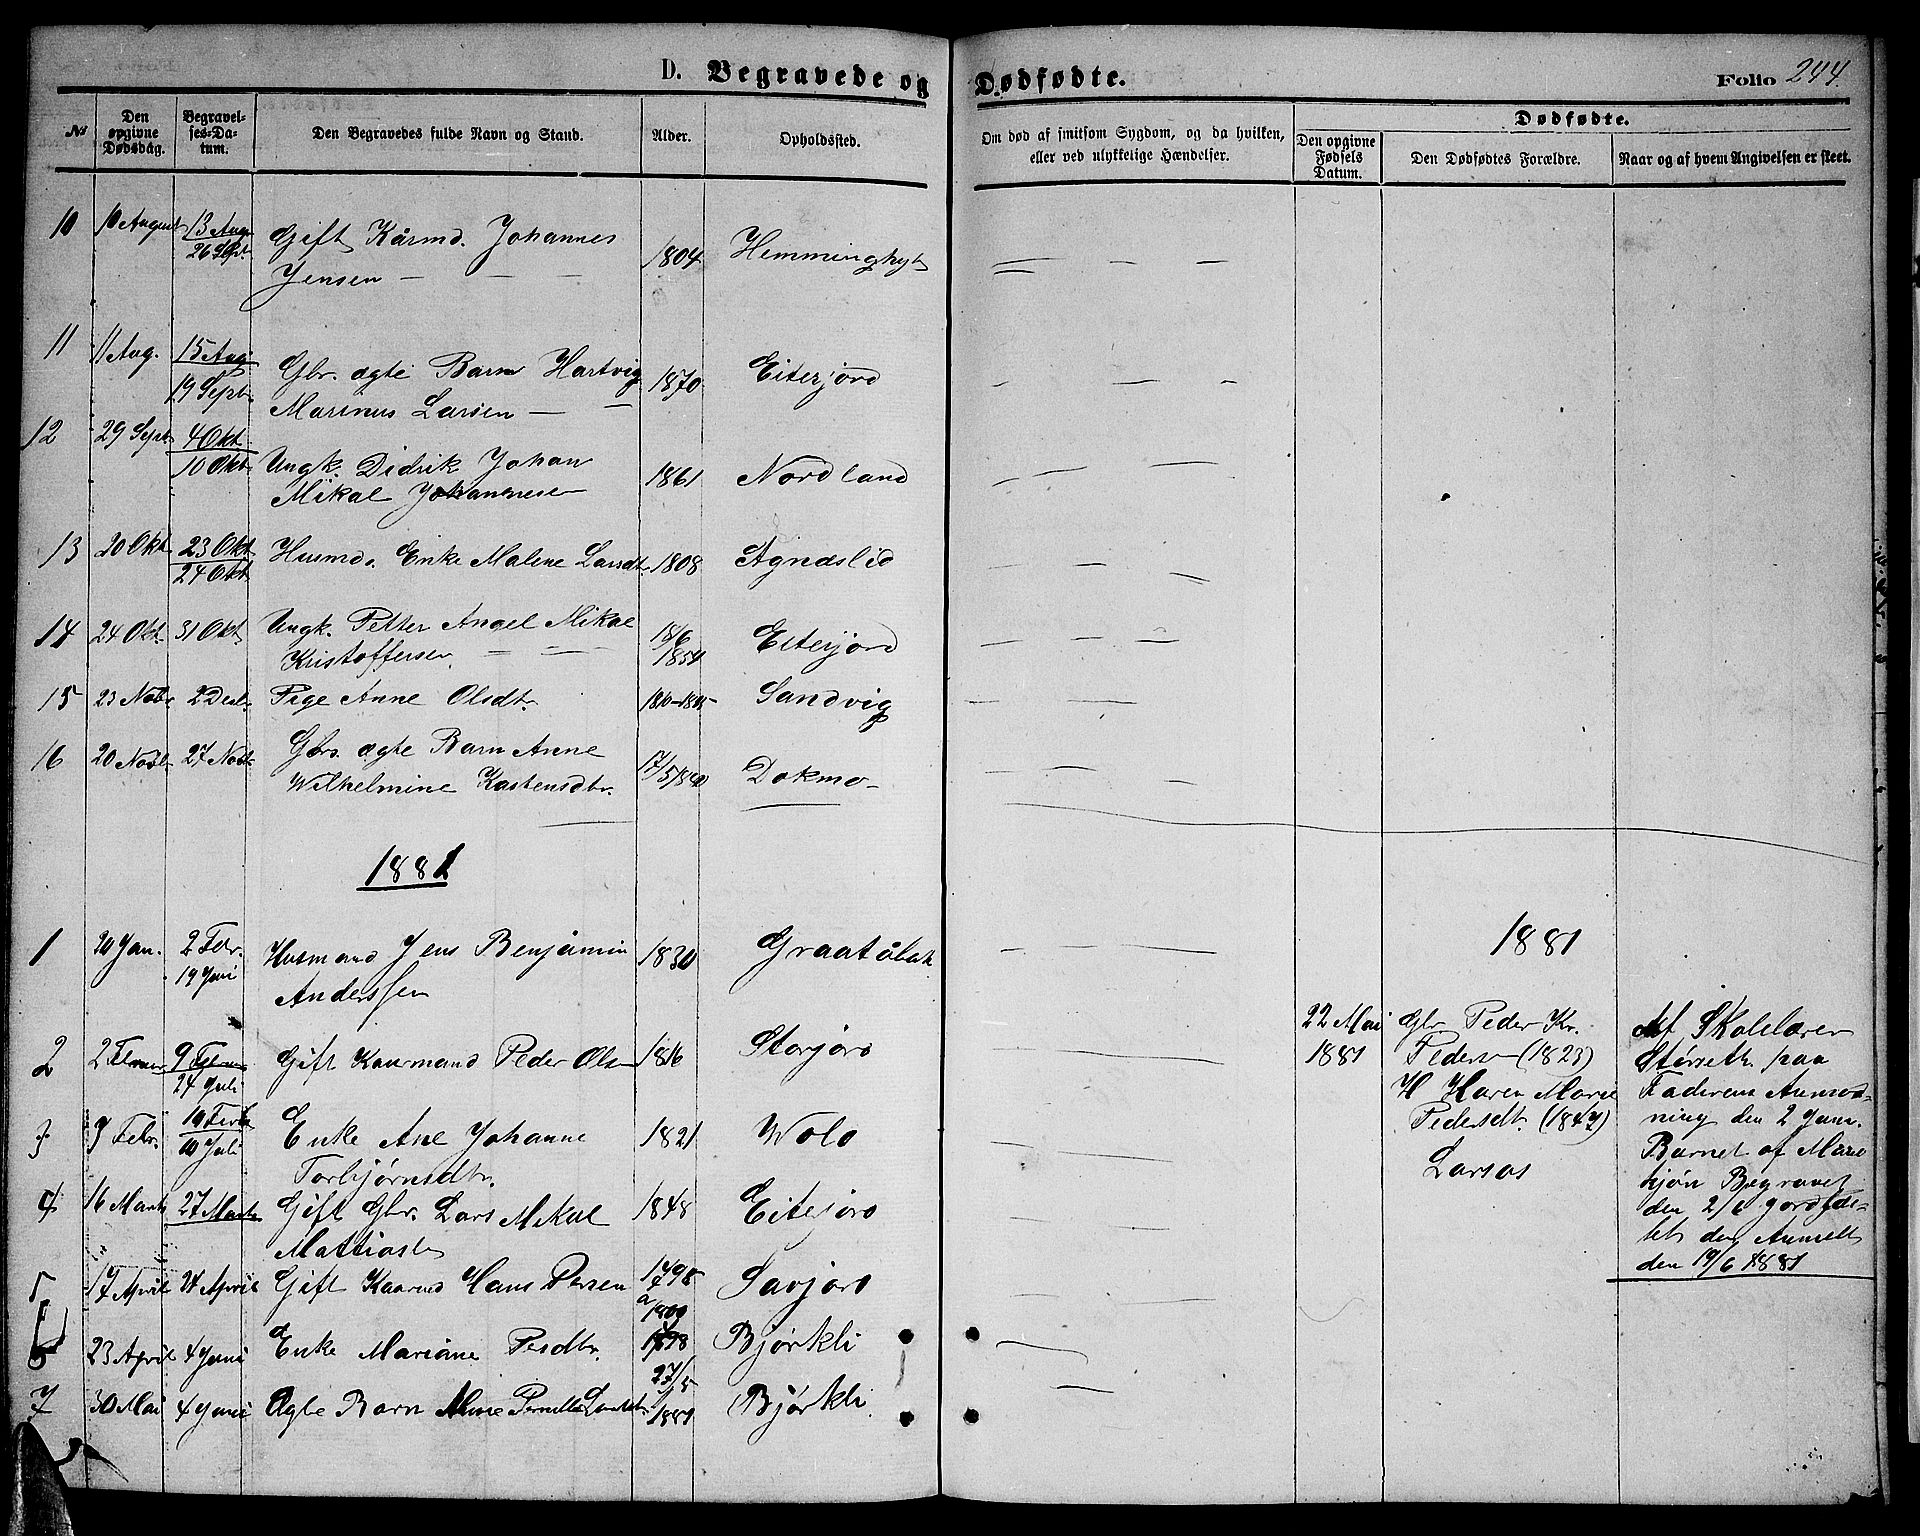 D. Begravede og Dødfødte. Folio 244.
No
Den opgivne Dødsdag.
Begravelses-Datum.
Den Begravedes fulde Navn og Stand.
Alder.
Opholdssted.
Om død af smitsom Sygdom, og da hvilken,
eller ved ulykkelige Hændelser.
Dødfødte.
Den opgivne Fødsels Datum.
Den Dødfødtes Forældre.
Naar og af hvem Angivelsen er skeet.
10 10 August 13 Aug 26 Sept Gift Kårmd. Johannes 1804 Hemminghyt
Jensen
11 11 Aug. 15 Aug 19 Sept Gbr. ægte Barn Hartvig 1870 Eiterjord
Marinus Larsen
12 29 Sept 4 Okt 10 Okt Ungk. Didrik Johan 1861 Nordland
Mikal Johannesen
13 20 Okt 23 Okt 24 Okt Husmd. Enke Malene Larsdt. 1808 Agnaslid
14 24 Okt. 31 Okt. Ungk. Petter Angel Mikal 18/6 1854 Eiterjord
Kristoffersen
15 23 Novbr 2 Decbr Pige Anne Olsdt. Sandvig
16 20 Novbr 27 Novbr Gbrs. ægte Barn Anne 17/5 1880 Dokmo
Wilhelmine Kastensdtr.
1881
1 20 Jan. 2 Febr. 19 Juni Husmand Jens Benjamin 1830 Graatålak
Anderssen
2 2 Februar 9 Februar 24 Juli Gift Kaarmand Peder Olsen 1816 Storjord
3 9 Febr. 19 Febr 10 Juli Enke Ane Johanne 1821 Wolo
Torbjørnsdtr.
4 16 Marts 27 Marts Gift Gbr. Lars Mikal 1848 Eiterjord
Mattiasen
5 17 April 24 April Gift Kaarmd Hans Persen 1798 a 1800 Savjord
6 23 April 4 Juni Enke Mariane Persdtr. 1798 Bjørkli
7 30 Mai 4 Juni Ægte Barn Aline Pernille Larsdt. 27/5 1881 Bjørkli.
1881
22 Mai 1881
Gbr Peder Kr.
Pedersen (1823)
H Maren Marie
Pedersdt. (1842)
Larsos
Af Skolelærer
Størseth paa
Faderens Anmod-
ning den 2 Juni.
Barnet af Mand-
kjøn Begravet
den 2/6 jordfæs-
tet den Anmeldt
den 19/6 1881